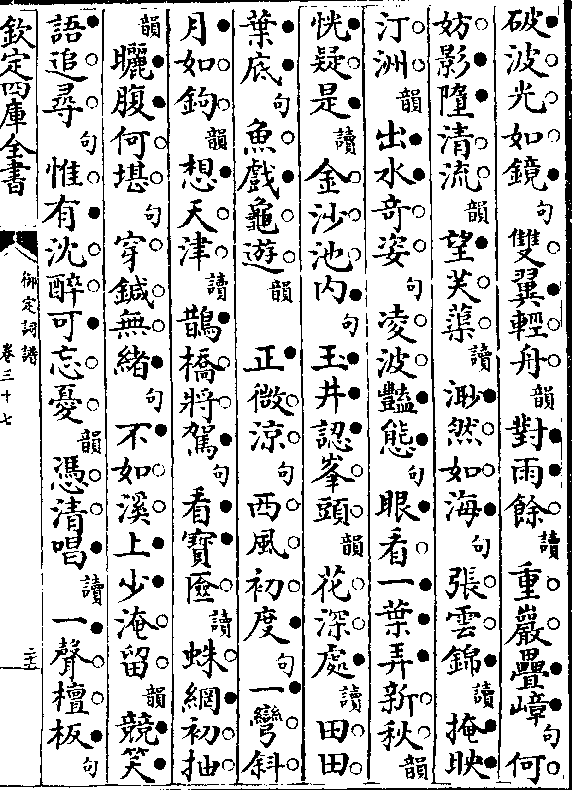 破波光如鏡句雙翼輕舟韻對雨餘讀重巖疊嶂句何
妨影墮清流韻望芙蕖讀渺然如海句張雲錦讀掩映
汀洲韻出水奇姿句凌波豔態句眼看一葉弄新秋韻
恍疑是讀金沙池内句玉井認峯頭韻花深處讀田田
葉底句魚戲龜遊韻 正微涼句西風初度句一彎斜
月如鉤韻想天津讀鵲橋將駕句看寶匳讀蛛網初抽
韻曬腹何堪句穿鍼無緒句不如溪上少淹留韻競笑
語追尋句惟有沈醉可忘憂韻憑清唱讀一聲檀板句
欽定四庫全書
御定詞譜
卷三十七